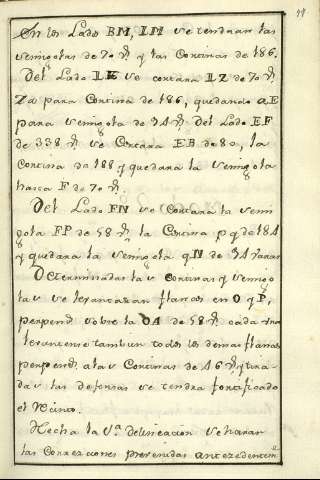 En los Lado BM, IM se tendran las
semigolas de 70 y las Cortinas de 186.
Del Lado IE se cortara IZ de 70
Za para Cortina de 186, quedando aE
para semigola de 74 Del Lado EF
de 338 se Cortara EB de 80, la
Cortina de 188 y quedara la semigola
hasta F de 70
Del Lado FN se Cortara la semi
gola FP de 58 la Cortina pq de 184
y quedara la semigola qN de 74 varas
Determinadas las Cortinas y semigo
las se levantaran flancos en O y P,
perpend sobre la OA de 58 cada uno
levantense tambien todos los demas flancos
perpend a las Cortinas de 46 y tira
das las defensas se tendra fortificado
el Recinto.
Hecha la delineacion se haran
las Correcciones prevenidas antecedentem